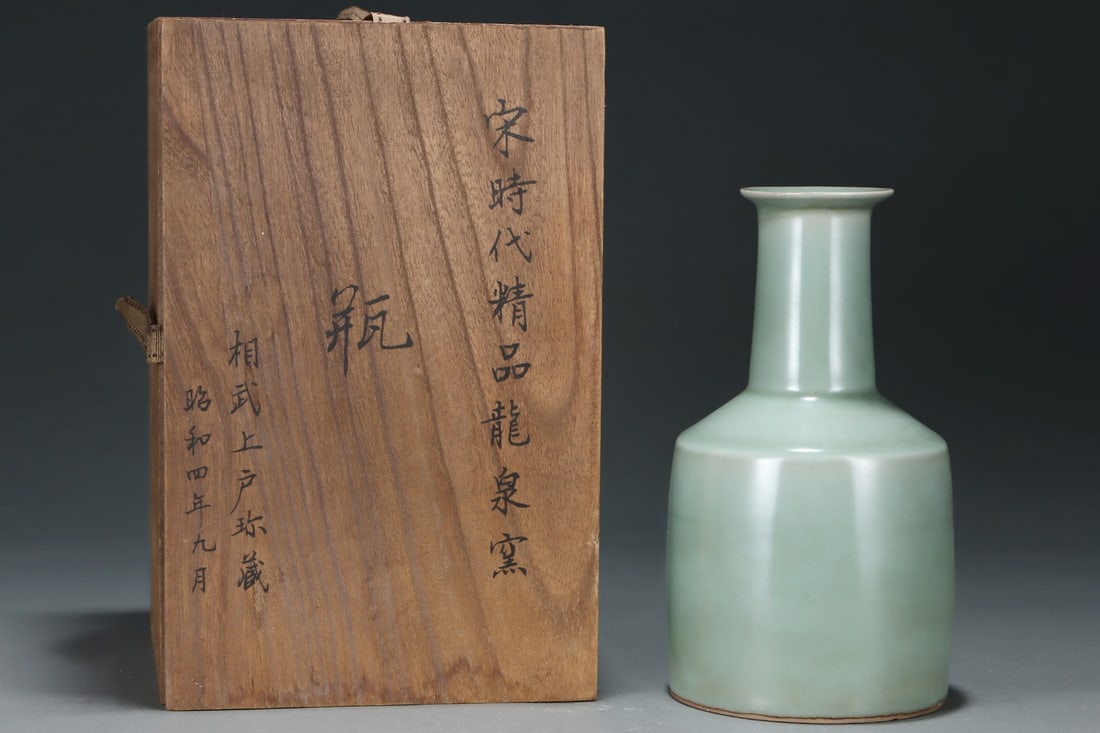 宋時代精品龍泉窯
瓶
相武上戸珎藏
昭和四年九月